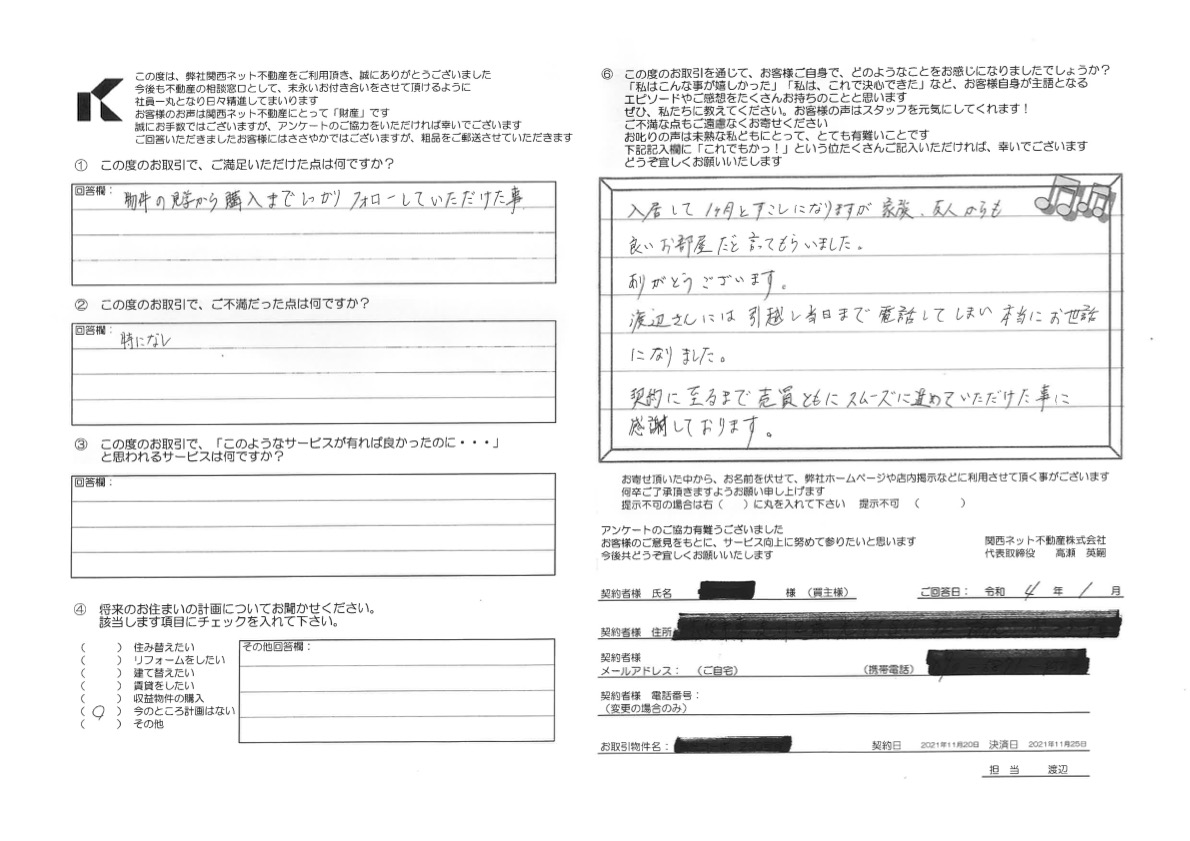 この度は、弊社関西ネット不動産をご利用頂き、誠にありがとうございました
今後も不動産の相談窓口として、末永いお付き合いをさせて頂けるように
社員一丸となり日々精進してまいります
お客様のお声は関西ネット不動産にとって「財産」です
誠にお手数ではございますが、アンケートのご協力をいただければ幸いでございます
ご回答いただきましたお客様にはささやかではございますが、粗品をご郵送させていただきます
① この度のお取引で、ご満足いただけた点は何ですか？
回答欄：
物件の見学から購入までしっかりフォローしていただけた事
② この度のお取引で、ご不満だった点は何ですか？
回答欄：
特になし
③ この度のお取引で、「このようなサービスが有れば良かったのに・・・」
と思われるサービスは何ですか？
回答欄：
④ 将来のお住まいの計画についてお聞かせください。
該当します項目にチェックを入れて下さい。
（　　） 住み替えたい
（　　） リフォームをしたい
（　　） 建て替えたい
（　　） 賃貸をしたい
（　　） 収益物件の購入
（ ○ ） 今のところ計画はない
（　　） その他
その他回答欄：
⑥ この度のお取引を通じて、お客様ご自身で、どのようなことをお感じになりましたでしょうか？
「私はこんな事が嬉しかった」「私は、これで決心できた」など、お客様自身が主語となる
エピソードやご感想をたくさんお持ちのことと思います
ぜひ、私たちに教えてください。お客様の声はスタッフを元気にしてくれます！
ご不満な点もご遠慮なくお寄せください
お叱りの声は未熟な私どもにとって、とても有難いことです
下記記入欄に「これでもかっ！」という位たくさんご記入いただければ、幸いでございます
どうぞ宜しくお願いいたします
入居して1ヶ月とすこしになりますが 家族、友人からも
良いお部屋だと言ってもらいました。
ありがとうございます。
渡辺さんには引越し当日まで電話してしまい本当にお世話
になりました。
契約に至るまで売買ともにスムーズに進めていただけた事に
感謝しております。
お寄せ頂いた中から、お名前を伏せて、弊社ホームページや店内掲示などに利用させて頂く事がございます
何卒ご了承頂きますようお願い申し上げます
提示不可の場合は右（　　）に丸を入れて下さい　提示不可　（　　　）
アンケートのご協力有難うございました
お客様のご意見をもとに、サービス向上に努めて参りたいと思います
今後共どうぞ宜しくお願いいたします
関西ネット不動産株式会社
代表取締役　高瀬　英嗣
契約者様 氏名　様 （買主様）　ご回答日： 令和 4 年 1 月
契約者様 住所
契約者様
メールアドレス： （ご自宅）　（携帯電話）
契約者様 電話番号：
（変更の場合のみ）
お取引物件名：　契約日 2021年11月20日 決済日 2021年11月25日
担 当　渡辺